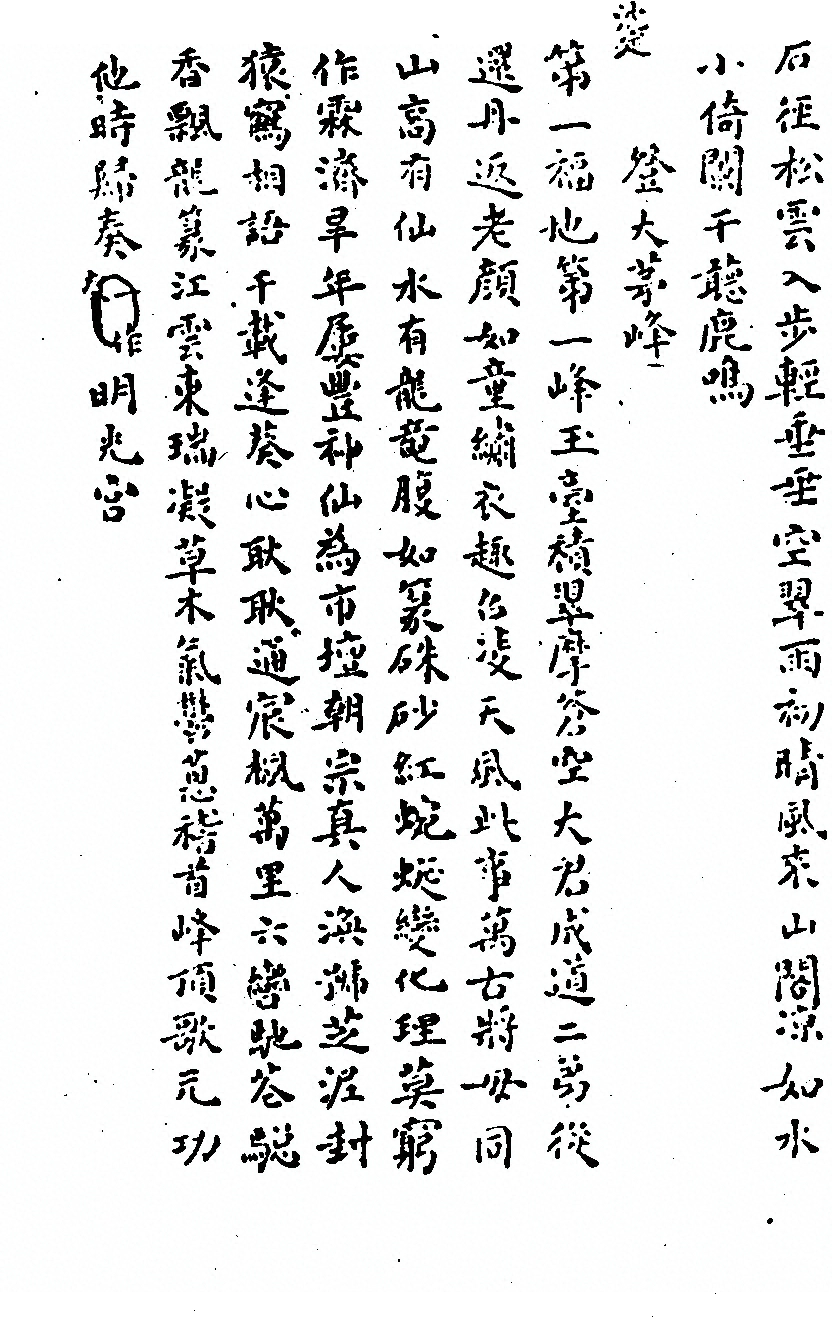 石徑松雲入步輕垂垂空翠雨初晴風來山閣涼如水
小倚闌干聽鹿鳴
登大茅峰
第一福地第一峰玉臺積翠摩蒼空大君成道二弟從
還丹返老顏如童繡衣趣召凌天風此事萬古將毋同
山高有仙水有龍龍腹如篆硃砂紅蜿蜒變化理莫窮
作霖濟旱年屢豐神仙為市壇朝宗真人渙號芝泥封
猿鶴相語千載逢葵心耿耿通宸楓萬里六轡馳蒼驄
香飄龍篆江雲東瑞凝草木氣鬱蔥稽首峰頂歌元功
他時歸奏作明光宮